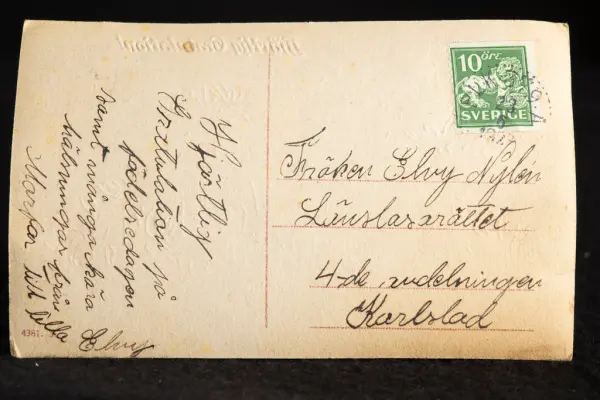 Hjärtlig Gratulation!
10 ÖRE
SVERIGE
Hjärtlig
Gratulation på
födelsedagen
samt många kära
hälsningar från
Morfar till lilla
Elvy
Fröken Elvy Nylén
Länslasarättet
4-de avdelningen
Karlstad
4361.